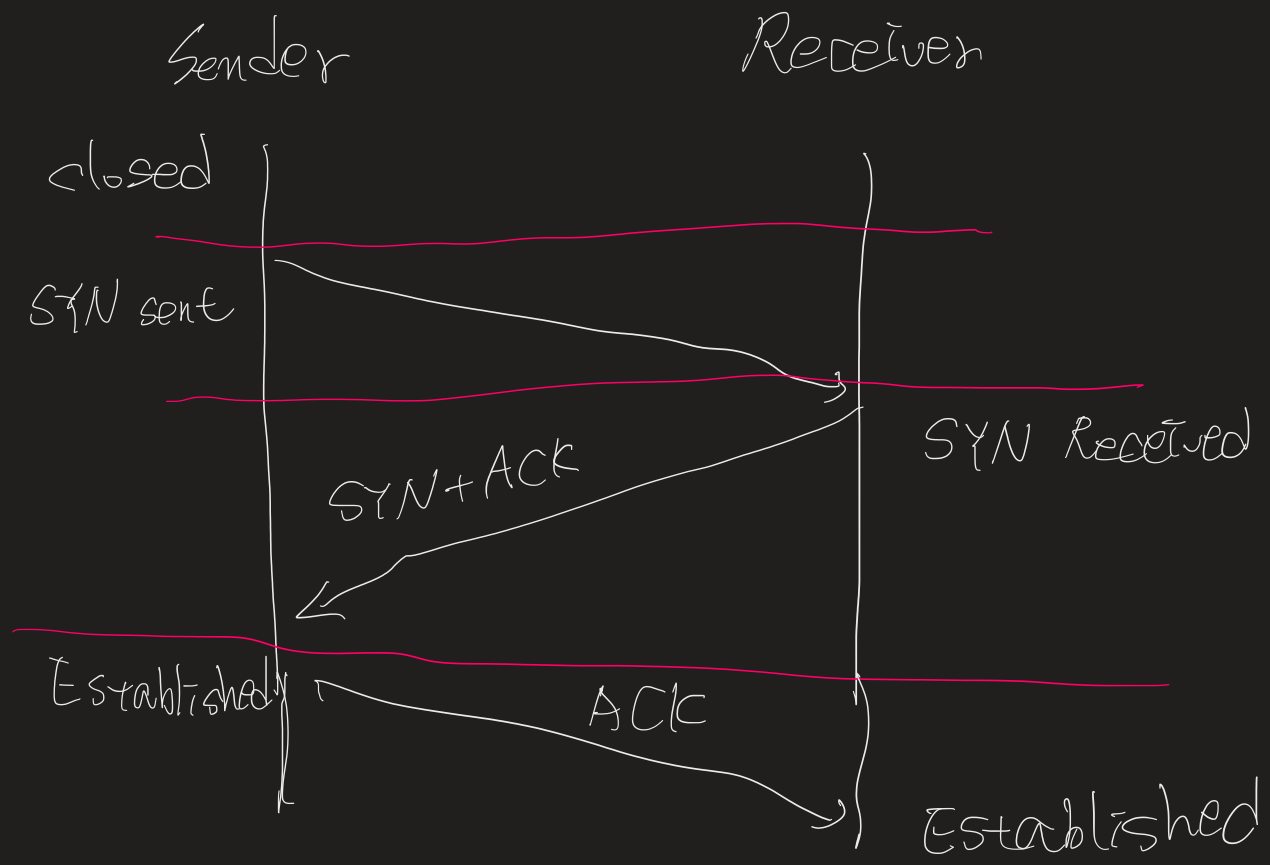 Sender
Receiver
closed
SYN sent
SYN Received
SYN+ACK
Established
ACK
Established